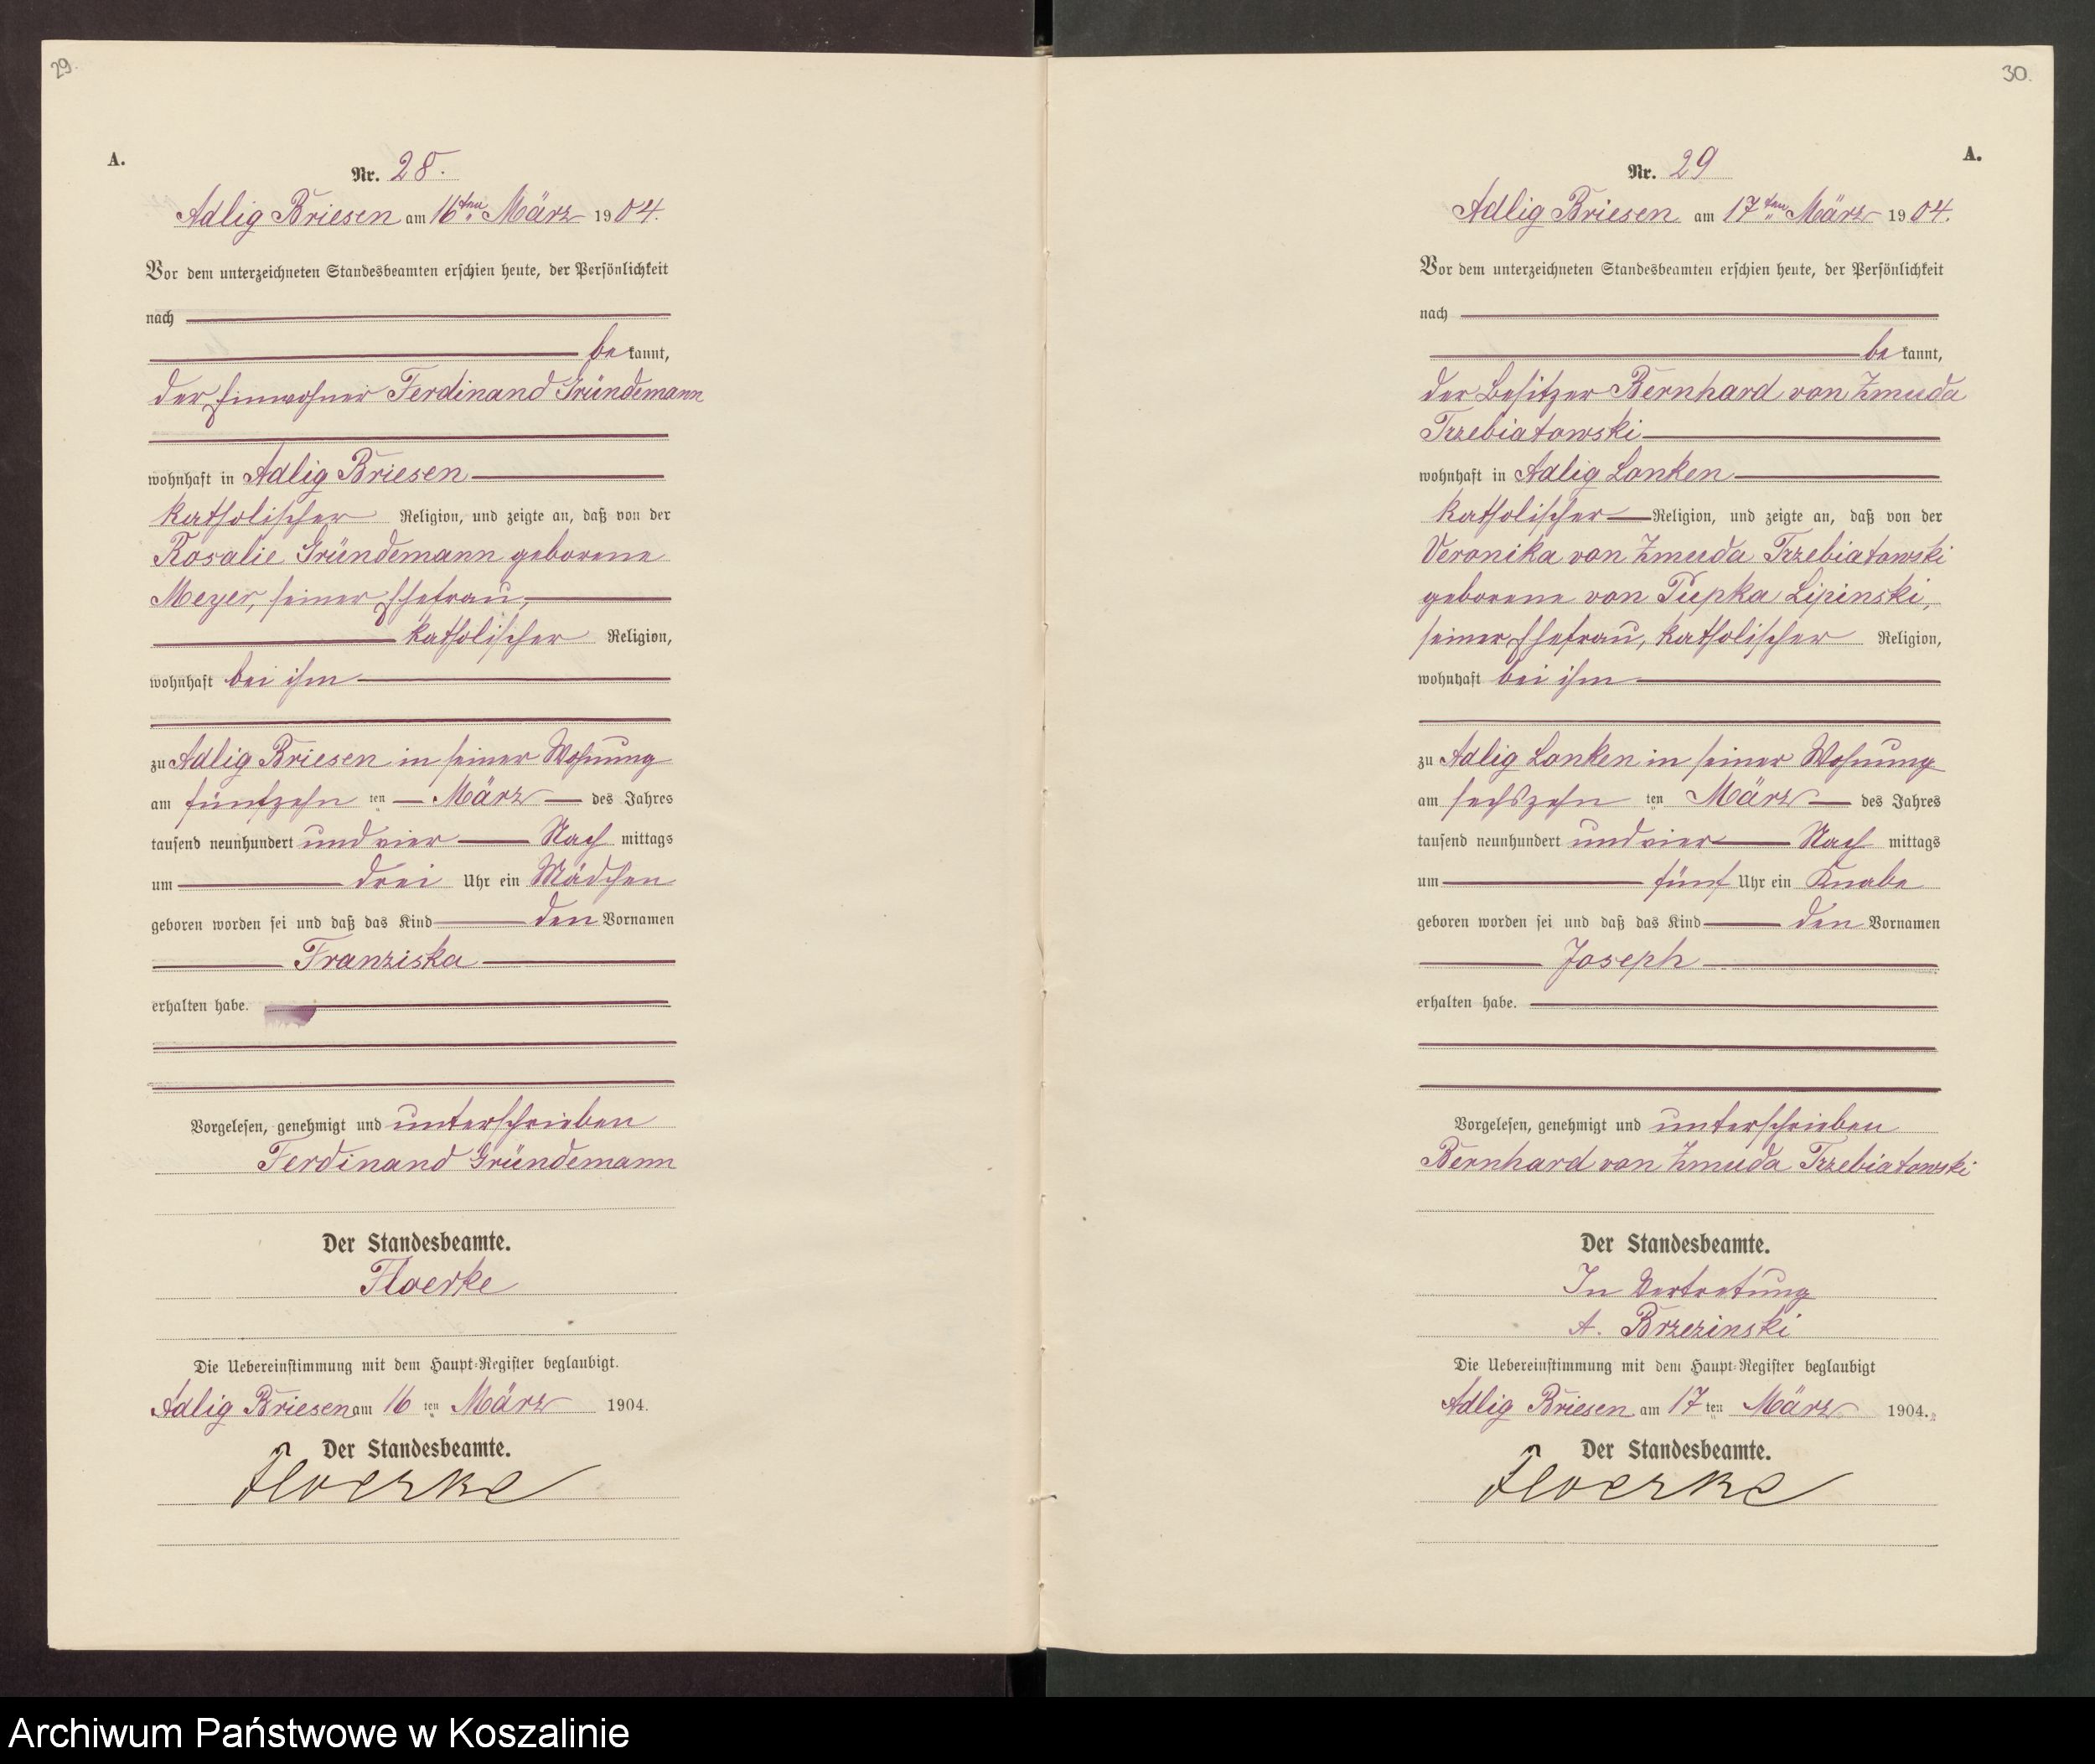 29.
A.
Nr. 28.
Adlig Briesen am 16ten März 1904.
Vor dem unterzeichneten Standesbeamten erschien heute, der Persönlichkeit
nach
be kannt,
der Einwohner Ferdinand Gründemann
wohnhaft in Adlig Briesen
katholischer Religion, und zeigte an, daß von der
Rosalie Gründemann geborene
Meyer, seiner Ehefrau,
katholischer Religion,
wohnhaft bei ihm
zu Adlig Briesen in seiner Wohnung
am fünfzehn ten März des Jahres
tausend neunhundert und vier Nach mittags
um drei Uhr ein Mädchen
geboren worden sei und daß das Kind den Vornamen
Franziska
erhalten habe.
Vorgelesen, genehmigt und unterschrieben
Ferdinand Gründemann
Der Standesbeamte.
Floerke
Die Uebereinstimmung mit dem Haupt-Register beglaubigt.
Adlig Briesen am 16 ten März 1904.
Der Standesbeamte.
Floerke
30.
A.
Nr. 29
Adlig Briesen am 17ten März 1904.
Vor dem unterzeichneten Standesbeamten erschien heute, der Persönlichkeit
nach
be kannt,
der Besitzer Bernhard von Zmuda
Trzebiatowski
wohnhaft in Adlig Lonken
katholischer Religion, und zeigte an, daß von der
Veronika von Zmuda Trzebiatowski
geborene von Piepka Lipinski,
seiner Ehefrau, katholischer Religion,
wohnhaft bei ihm
zu Adlig Lonken in seiner Wohnung
am sechszehn ten März des Jahres
tausend neunhundert und vier Nach mittags
um fünf Uhr ein Knabe
geboren worden sei und daß das Kind den Vornamen
Joseph
erhalten habe.
Vorgelesen, genehmigt und unterschrieben
Bernhard von Zmuda Trzebiatowski
Der Standesbeamte.
In Vertretung
A. Brzezinski
Die Uebereinstimmung mit dem Haupt-Register beglaubigt
Adlig Briesen am 17 ten März 1904.
Der Standesbeamte.
Floerke
Archiwum Państwowe w Koszalinie